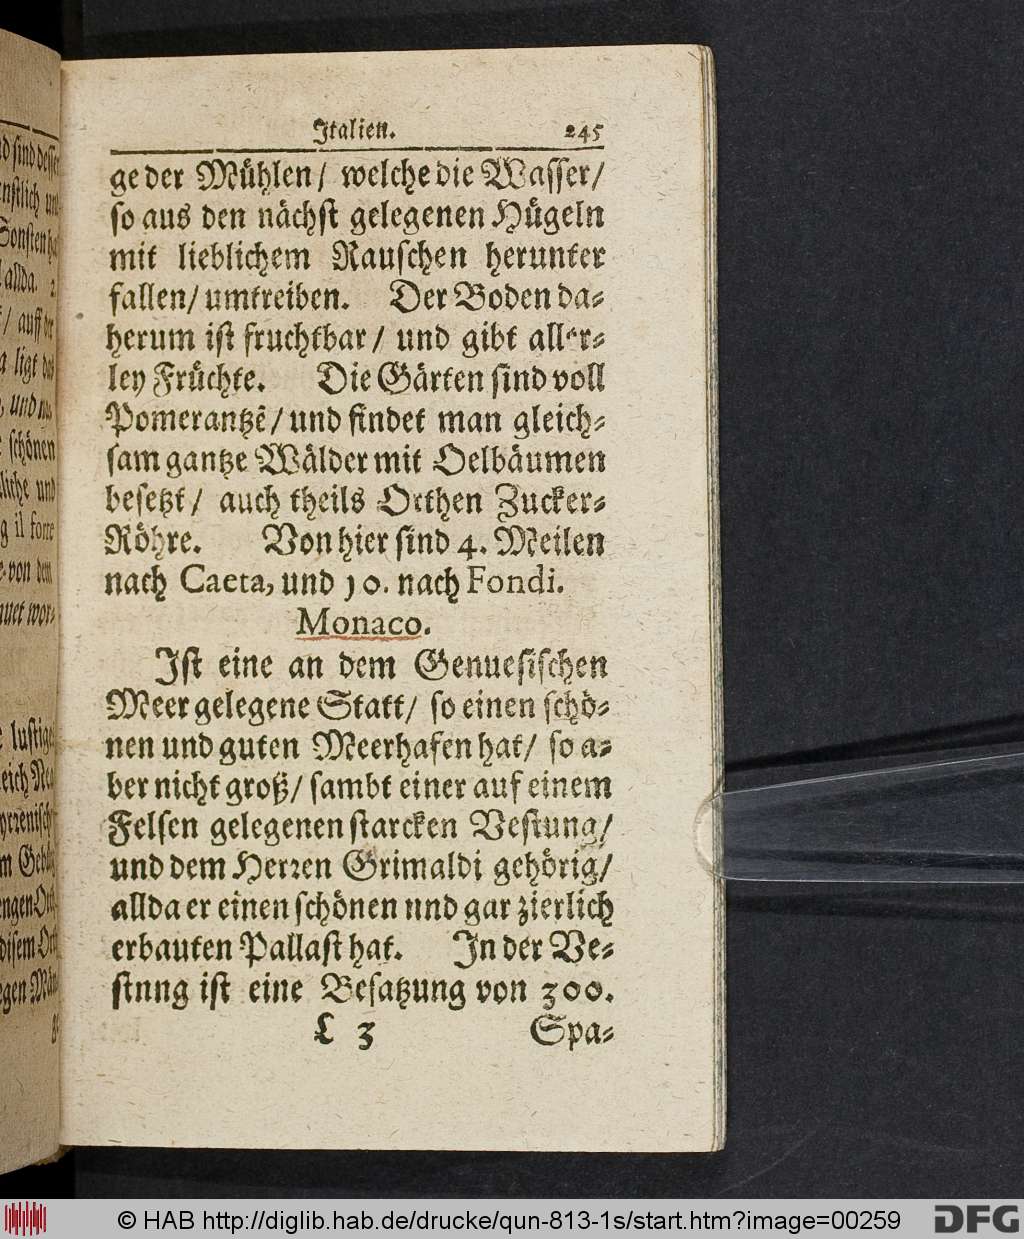 Italien. 245
ge der Mühlen/ welche die Wasser/
so aus den nächst gelegenen Hügeln
mit lieblichem Rauschen herunter
fallen/ umtreiben. Der Boden da-
herum ist fruchtbar/ und gibt aller-
ley Früchte. Die Gärten sind voll
Pomerantzẽ/ und findet man gleich-
sam gantze Wälder mit Oelbäumen
besetzt/ auch theils Orthen Zucker-
Röhre. Von hier sind 4. Meilen
nach Caeta, und 10. nach Fondi.
Monaco.
Ist eine an dem Genuesischen
Meer gelegene Statt/ so einen schö-
nen und guten Meerhafen hat/ so a-
ber nicht groß/ sambt einer auf einem
Felsen gelegenen starcken Vestung/
und dem Herren Grimaldi gehörig/
allda er einen schönen und gar zierlich
erbauten Pallast hat. In der Ve-
stnng ist eine Besatzung von 300.
L 3 Spa-
© HAB http://diglib.hab.de/drucke/qun-813-1s/start.htm?image=00259
DFG